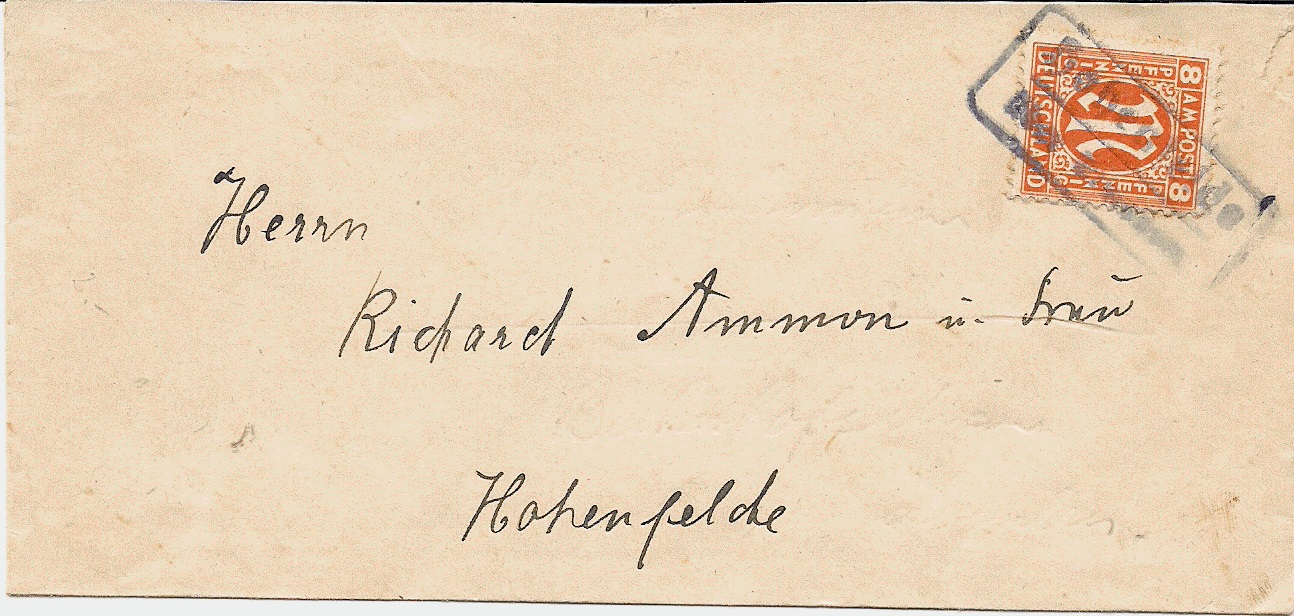 8 AM POST 8
PFENNIG
PFENNIG
DEUTSCHLAND
M
Herrn
Richard Ammon u. Frau
Hohenfelde